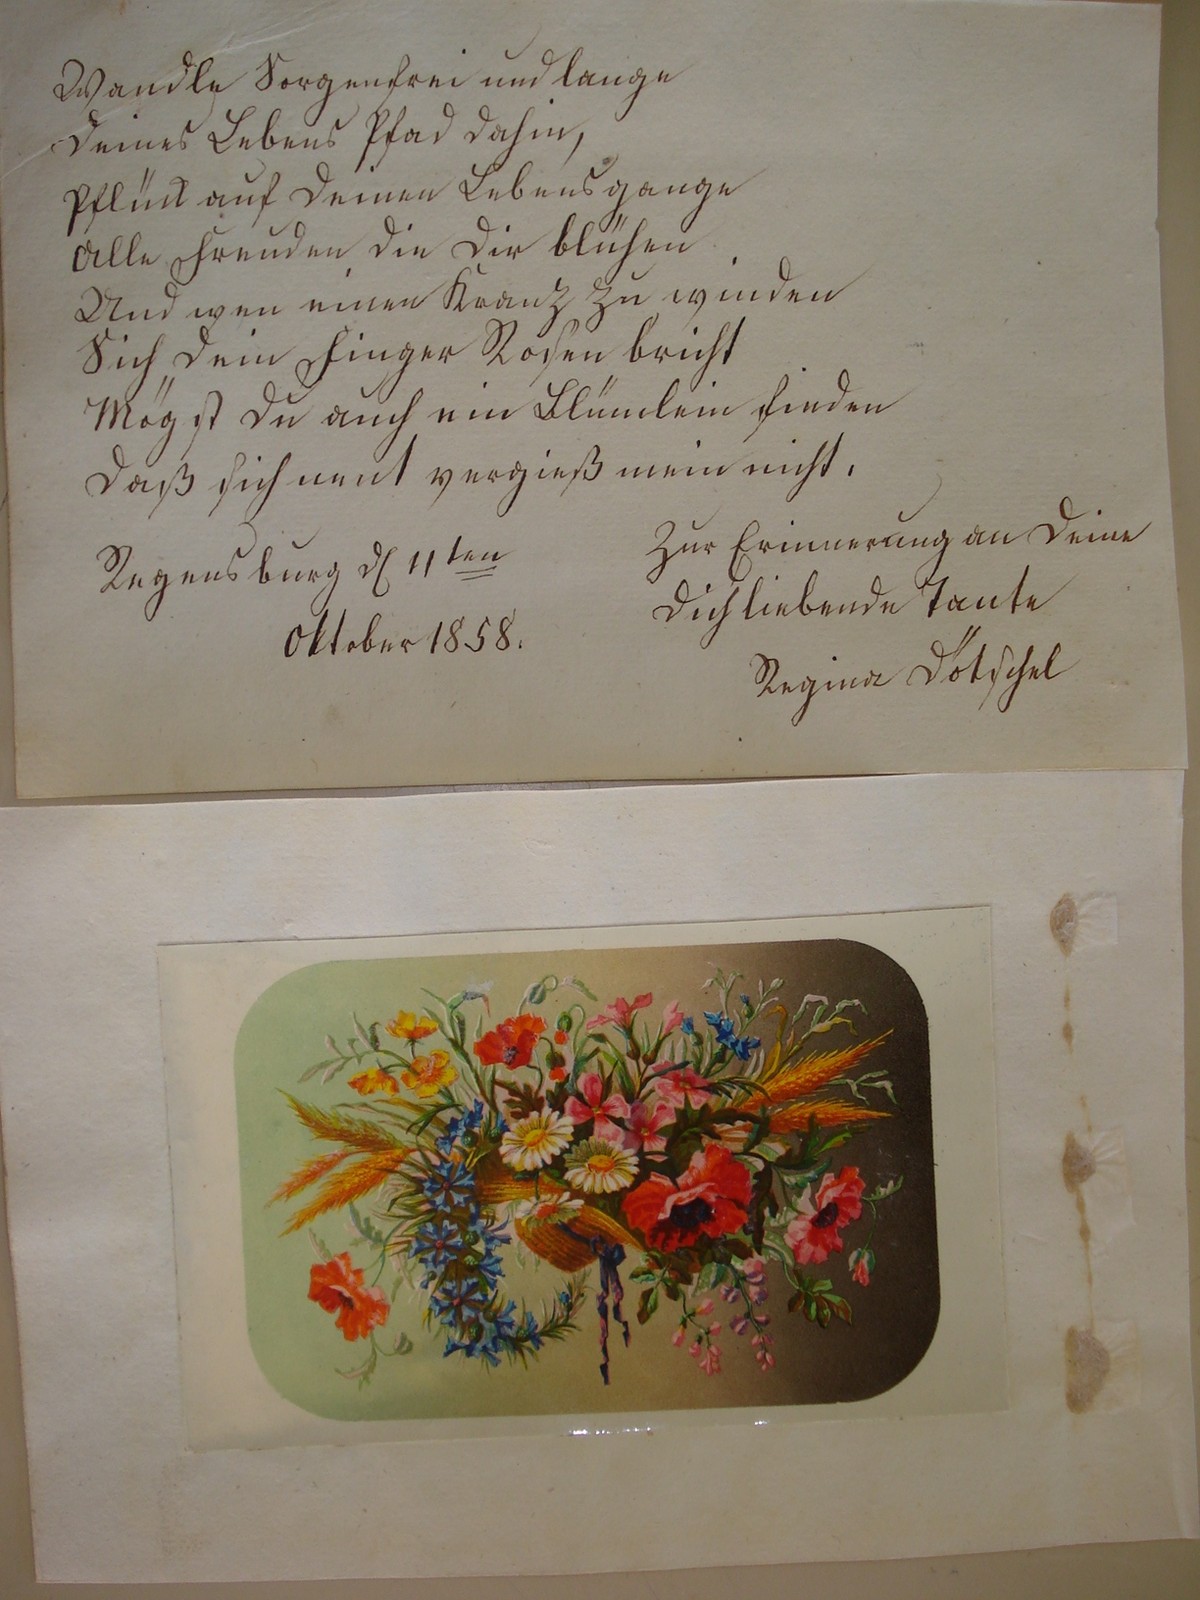 Wandle Sorgenfrei und lange
Deines Lebens Pfad dahin,
Pflück auf Deinen Lebensgange
Alle Freuden die Dir blühen
Und wen einen Kranz zu winden
Sich Dein Finger Rosen bricht
Mögst Du auch ein Blümlein finden
Daß sich nent vergieß mein nicht.
Regensburg d 11ten
Oktober 1858.
Zur Erinnerung an Deine
Dich liebende Tante
Regina Dötschel